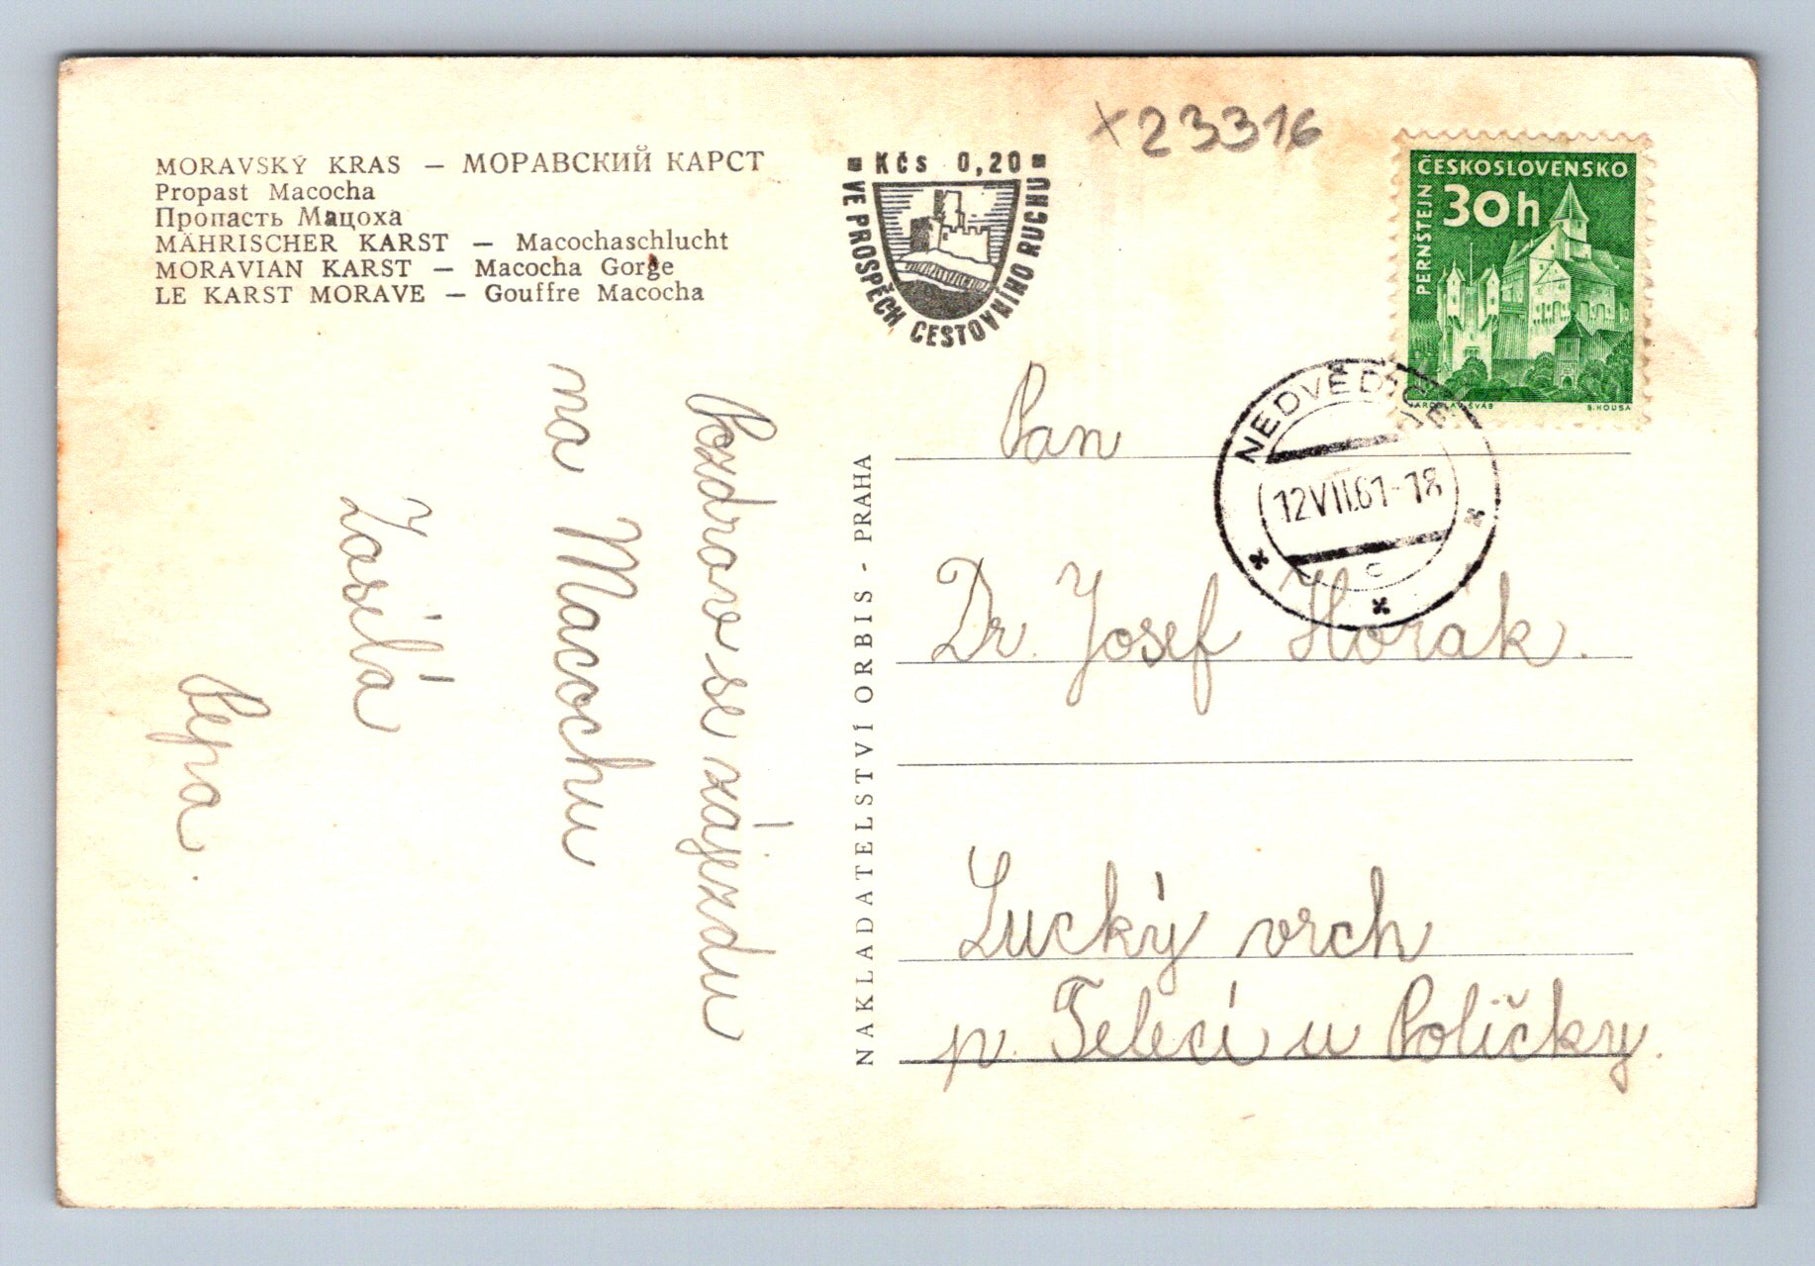 MORAVSKÝ KRAS — МОРАВСКИЙ КАРСТ
Propast Macocha
Пропасть Мацоха
MÄHRISCHER KARST — Macochaschlucht
MORAVIAN KARST — Macocha Gorge
LE KARST MORAVE — Gouffre Macocha
KČs 0,20
VE PROSPĚCH CESTOVNÍHO RUCHU
x23316
ČESKOSLOVENSKO
30h
PERNŠTEJN
JAROSLAV ŠVÁB
B.HOUSA
NEDVĚDICE
12VII.61-18
c
Pozdrav se zájezdu
na Macochu
Zasílá
Pepa.
NAKLADATELSTVÍ ORBIS - PRAHA
Pan
Dr. Josef Horak.
Lucký vrch
p. Telecí u Poličky.